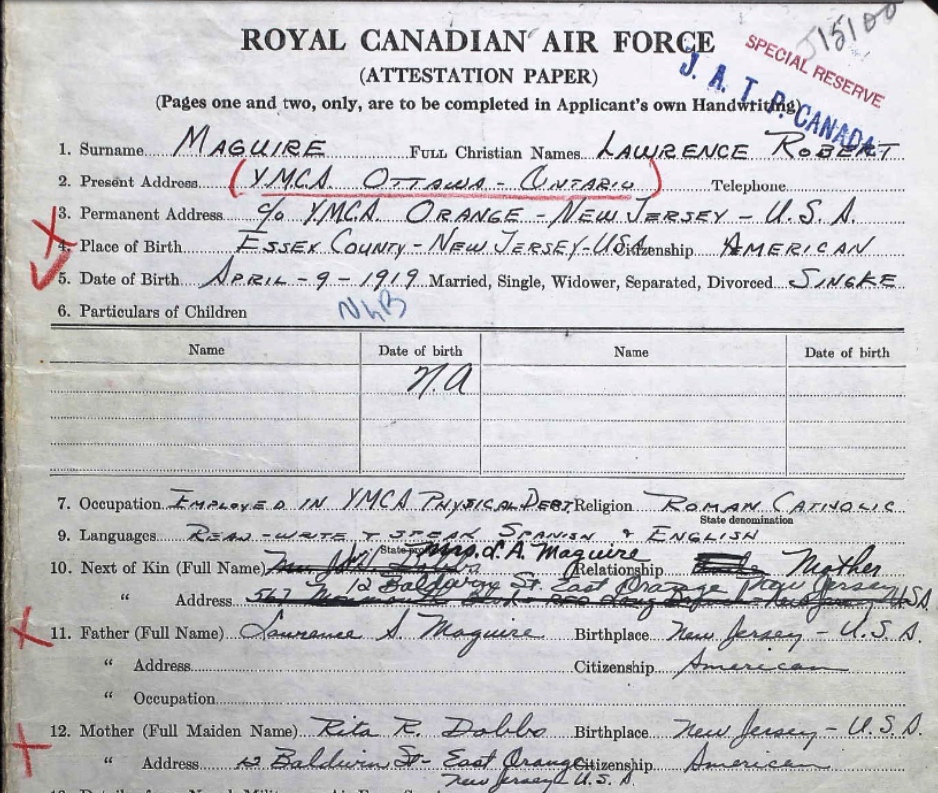 J15100
ROYAL CANADIAN AIR FORCE
SPECIAL RESERVE
(ATTESTATION PAPER)
J. A. T. P. CANADA
(Pages one and two, only, are to be completed in Applicant's own Handwriting)
1. Surname MAGUIRE FULL Christian Names LAWRENCE ROBERT
2. Present Address (YMCA OTTAWA - ONTARIO) Telephone
3. Permanent Address c/o YMCA ORANGE - NEW JERSEY - U.S.A.
4. Place of Birth ESSEX COUNTY - NEW JERSEY - USA Citizenship AMERICAN
5. Date of Birth APRIL - 9 - 1919 Married, Single, Widower, Separated, Divorced SINGLE
6. Particulars of Children
Name Date of birth Name Date of birth
N.A
7. Occupation EMPLOYED IN YMCA PHYSICAL DEPT Religion ROMAN CATHOLIC
State denomination
9. Languages READ - WRITE + SPEAK SPANISH & ENGLISH
10. Next of Kin (Full Name) Mrs. L. A. Maguire Relationship Mother
" Address 12 Baldwin St. East Orange New Jersey U.S.A.
11. Father (Full Name) Lawrence S. Maguire Birthplace New Jersey - U.S.A.
" Address Citizenship American
" Occupation
12. Mother (Full Maiden Name) Rita R. Dobbs Birthplace New Jersey - U.S.A.
" Address 12 Baldwin St - East Orange Citizenship American
New Jersey U.S.A.